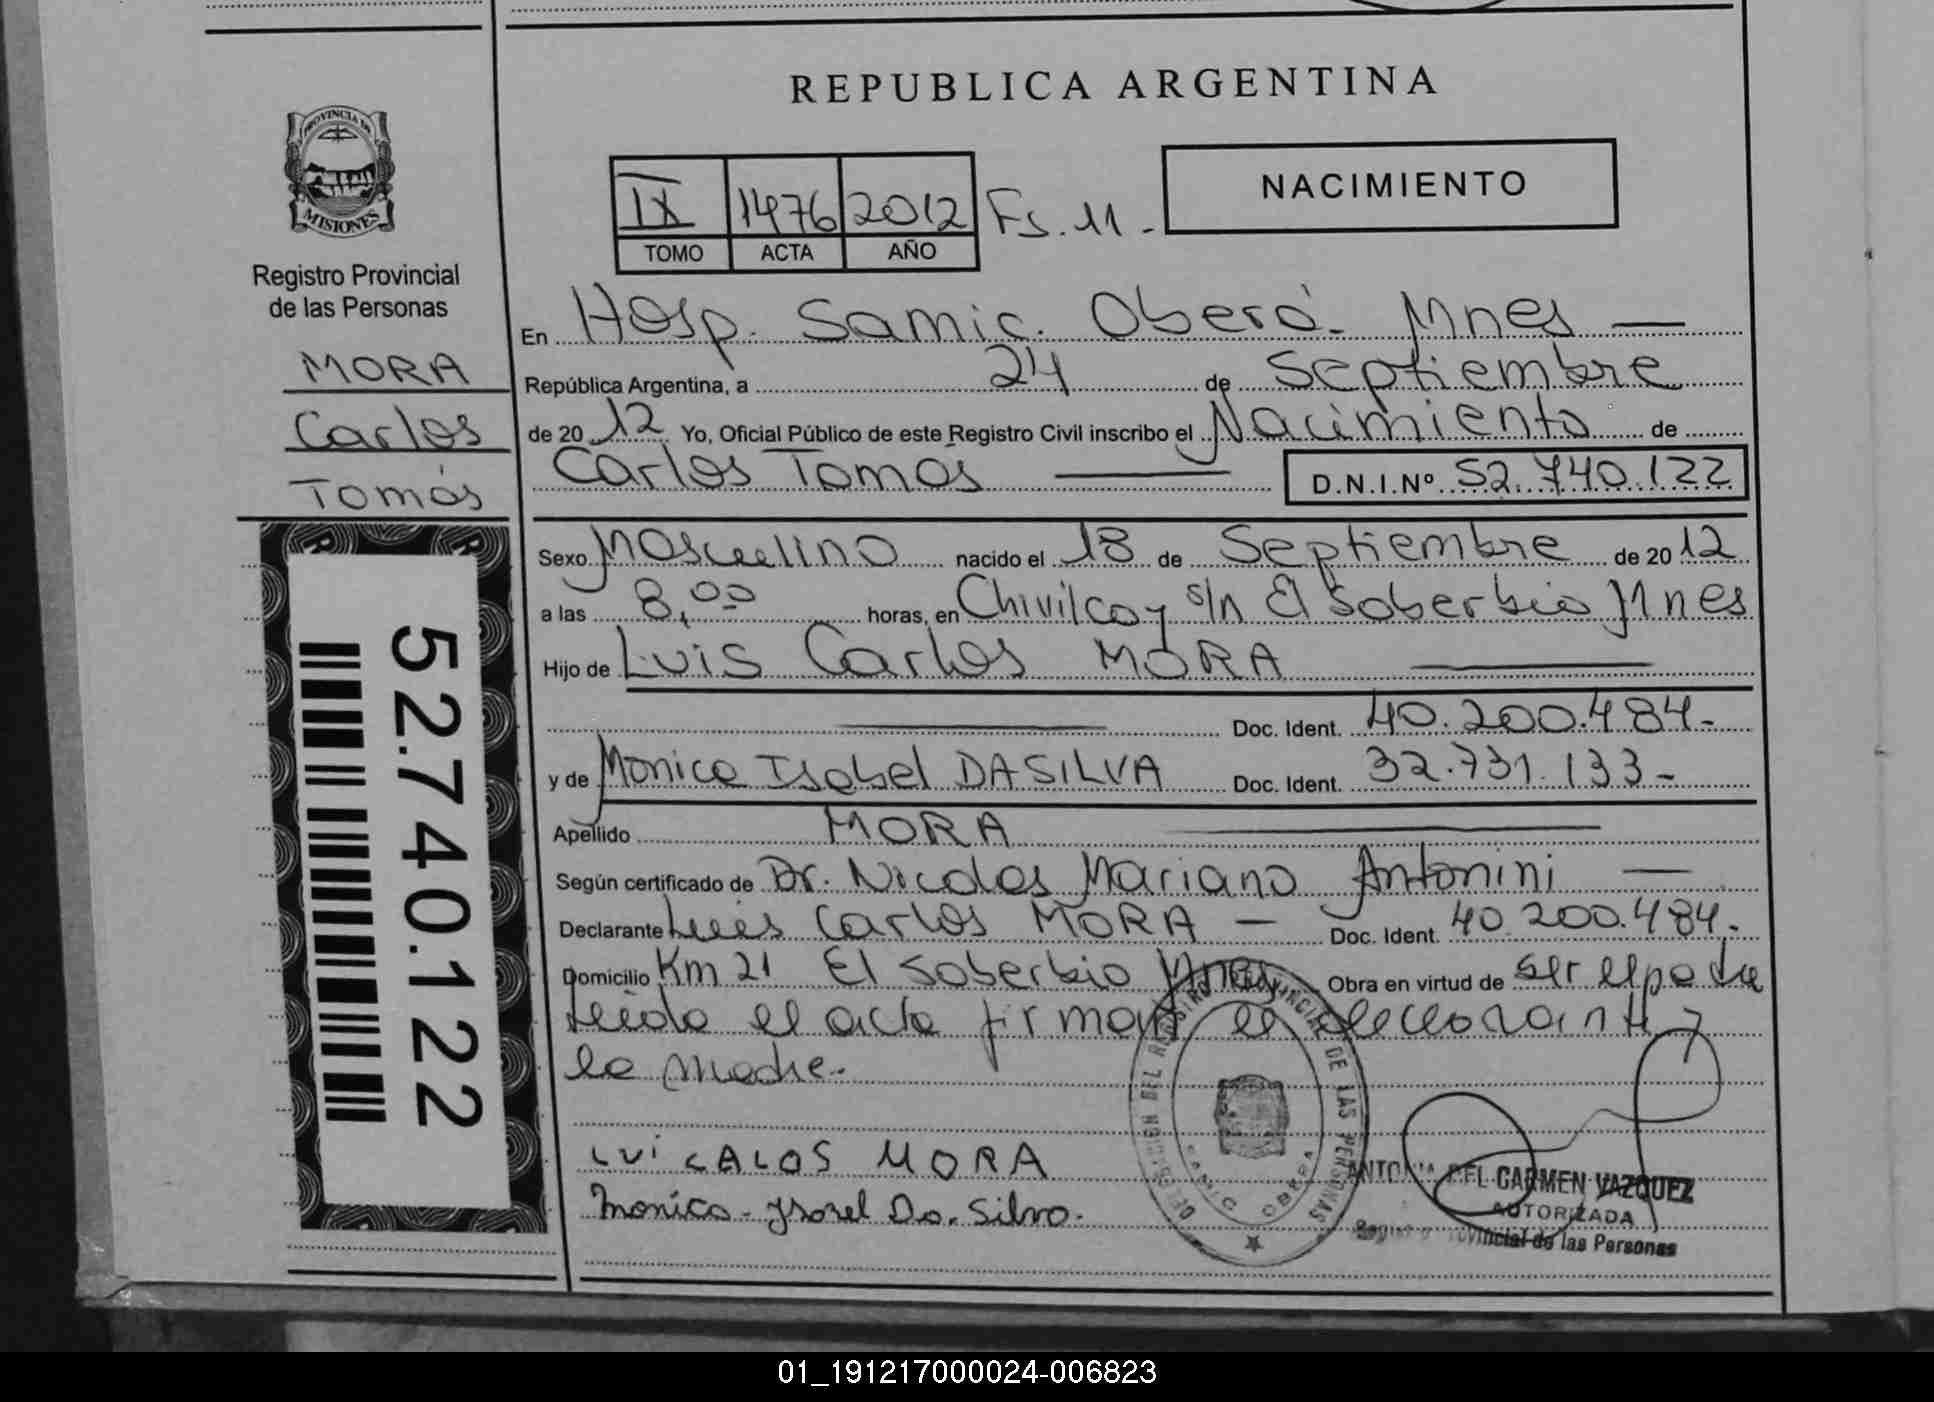 REPUBLICA ARGENTINA
PROVINCIA DE
MISIONES
Registro Provincial
de las Personas
MORA
Carlos
Tomás
52.740.122
IX 1476 2012 Fs. 11.-
TOMO ACTA AÑO
NACIMIENTO
En Hosp. Samic. Oberá. Mnes
República Argentina, a 24 de Septiembre
de 2012 Yo, Oficial Público de este Registro Civil inscribo el Nacimiento de
Carlos Tomás D.N.I.Nº 52.740.122
Sexo Masculino nacido el 18 de Septiembre de 2012
a las 8,00 horas, en Chivilcoy s/n El Soberbio Mnes
Hijo de Luis Carlos MORA
Doc. Ident. 40.200.484.-
y de Monica Isabel DASILVA Doc. Ident. 32.731.133-
Apellido MORA
Según certificado de Dr. Nicolas Mariano Antonini
Declarante Luis Carlos MORA - Doc. Ident. 40.200.484.
Domicilio Km 21 El Soberbio Mnes Obra en virtud de ser el padre
leida el acta firman el declarante y
la madre.-
LUi CALOS MORA
Monica - Ysabel Da. Silva.
DELEGACION DEL REGISTRO PROVINCIAL DE LAS PERSONAS
SAMIC OBERA
DEL CARMEN VAZQUEZ
AUTORIZADA
Registro Provincial de las Personas
01_191217000024-006823